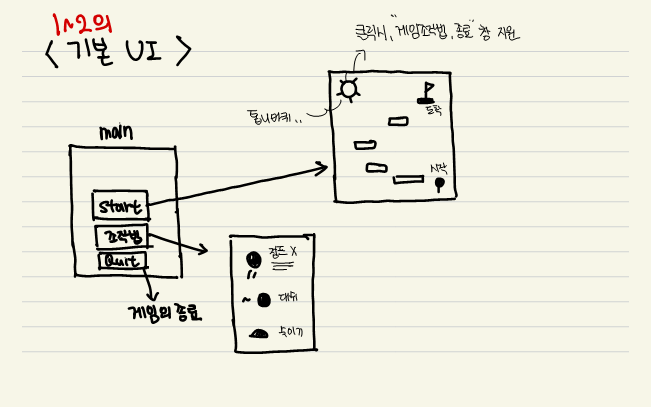 1~2의
< 기본 UI >
클릭시, "게임조작법, 종료" 창 지원
톱니바퀴..
도착
시작
main
start
조작법
Quit
게임의 종료
점프 X
대쉬
숙이기